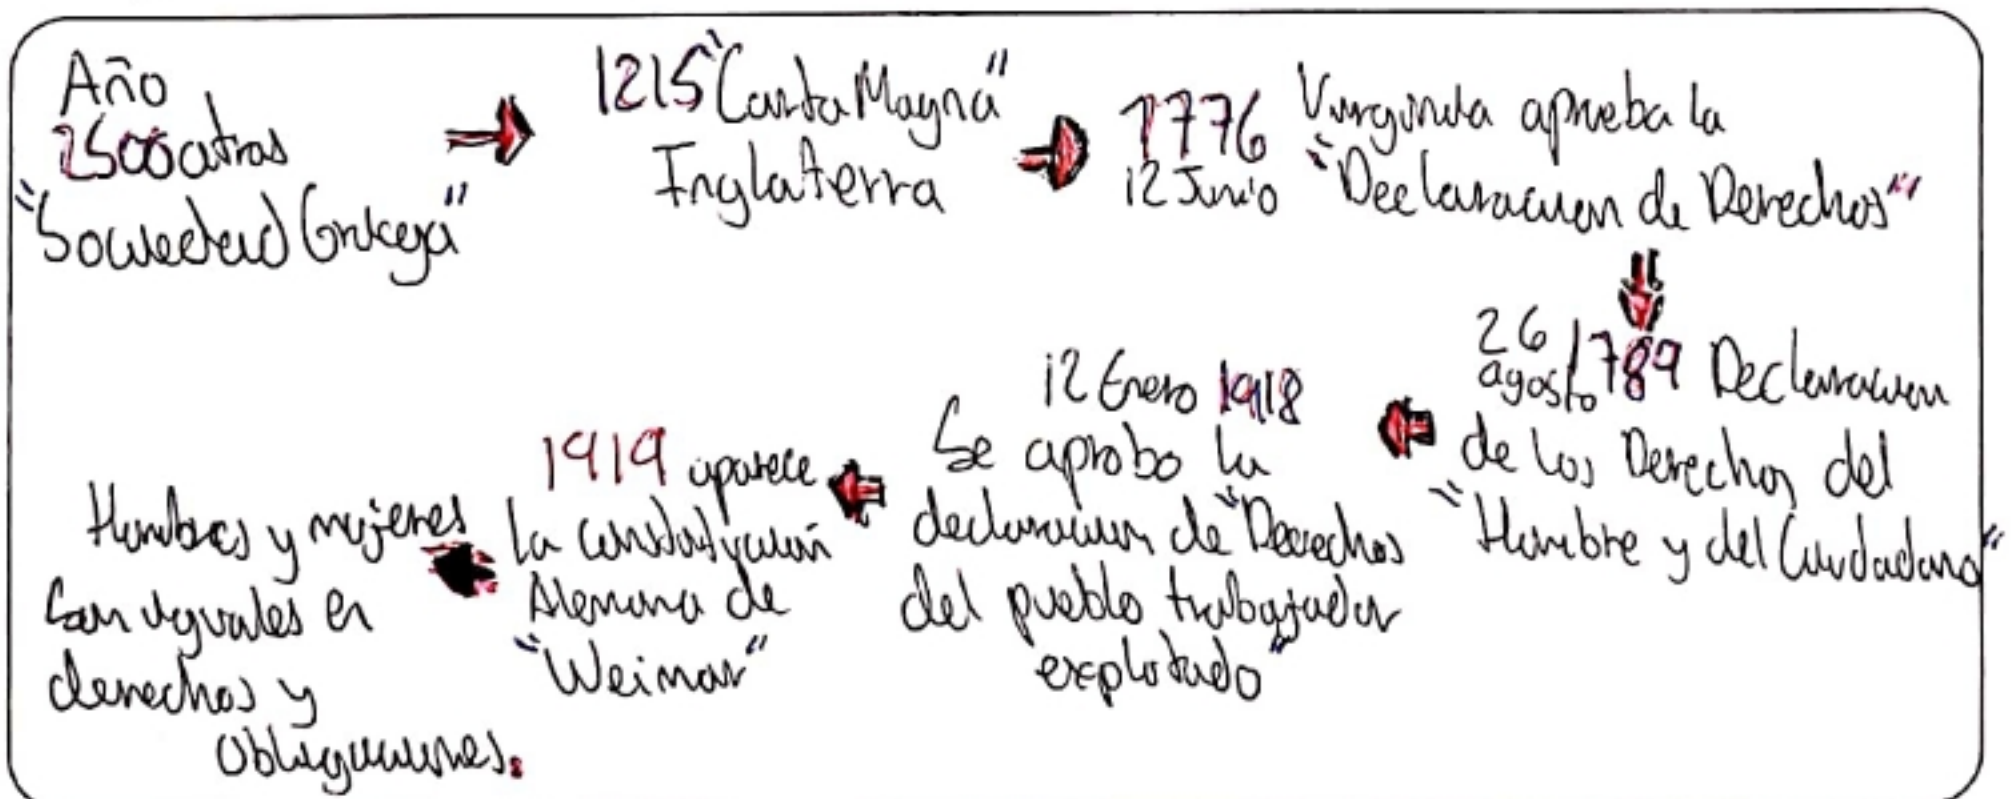 Año
2500 atras
"Sociedad Griega"
1215 "Carta Magna"
Inglaterra
1776
12 Junio
Virginia aprueba la
"Declaracion de Derechos"
26
agosto
1789 Declaracion
de los Derechos del
"Hombre y del Ciudadano"
12 Enero 1918
Se aprobo la
declaracion de "Derechos
del pueblo trabajador
explotado"
1919 aparece
la constitución
Alemana de
"Weimar"
Hombres y mujeres
son iguales en
derechos y
Obligaciones.